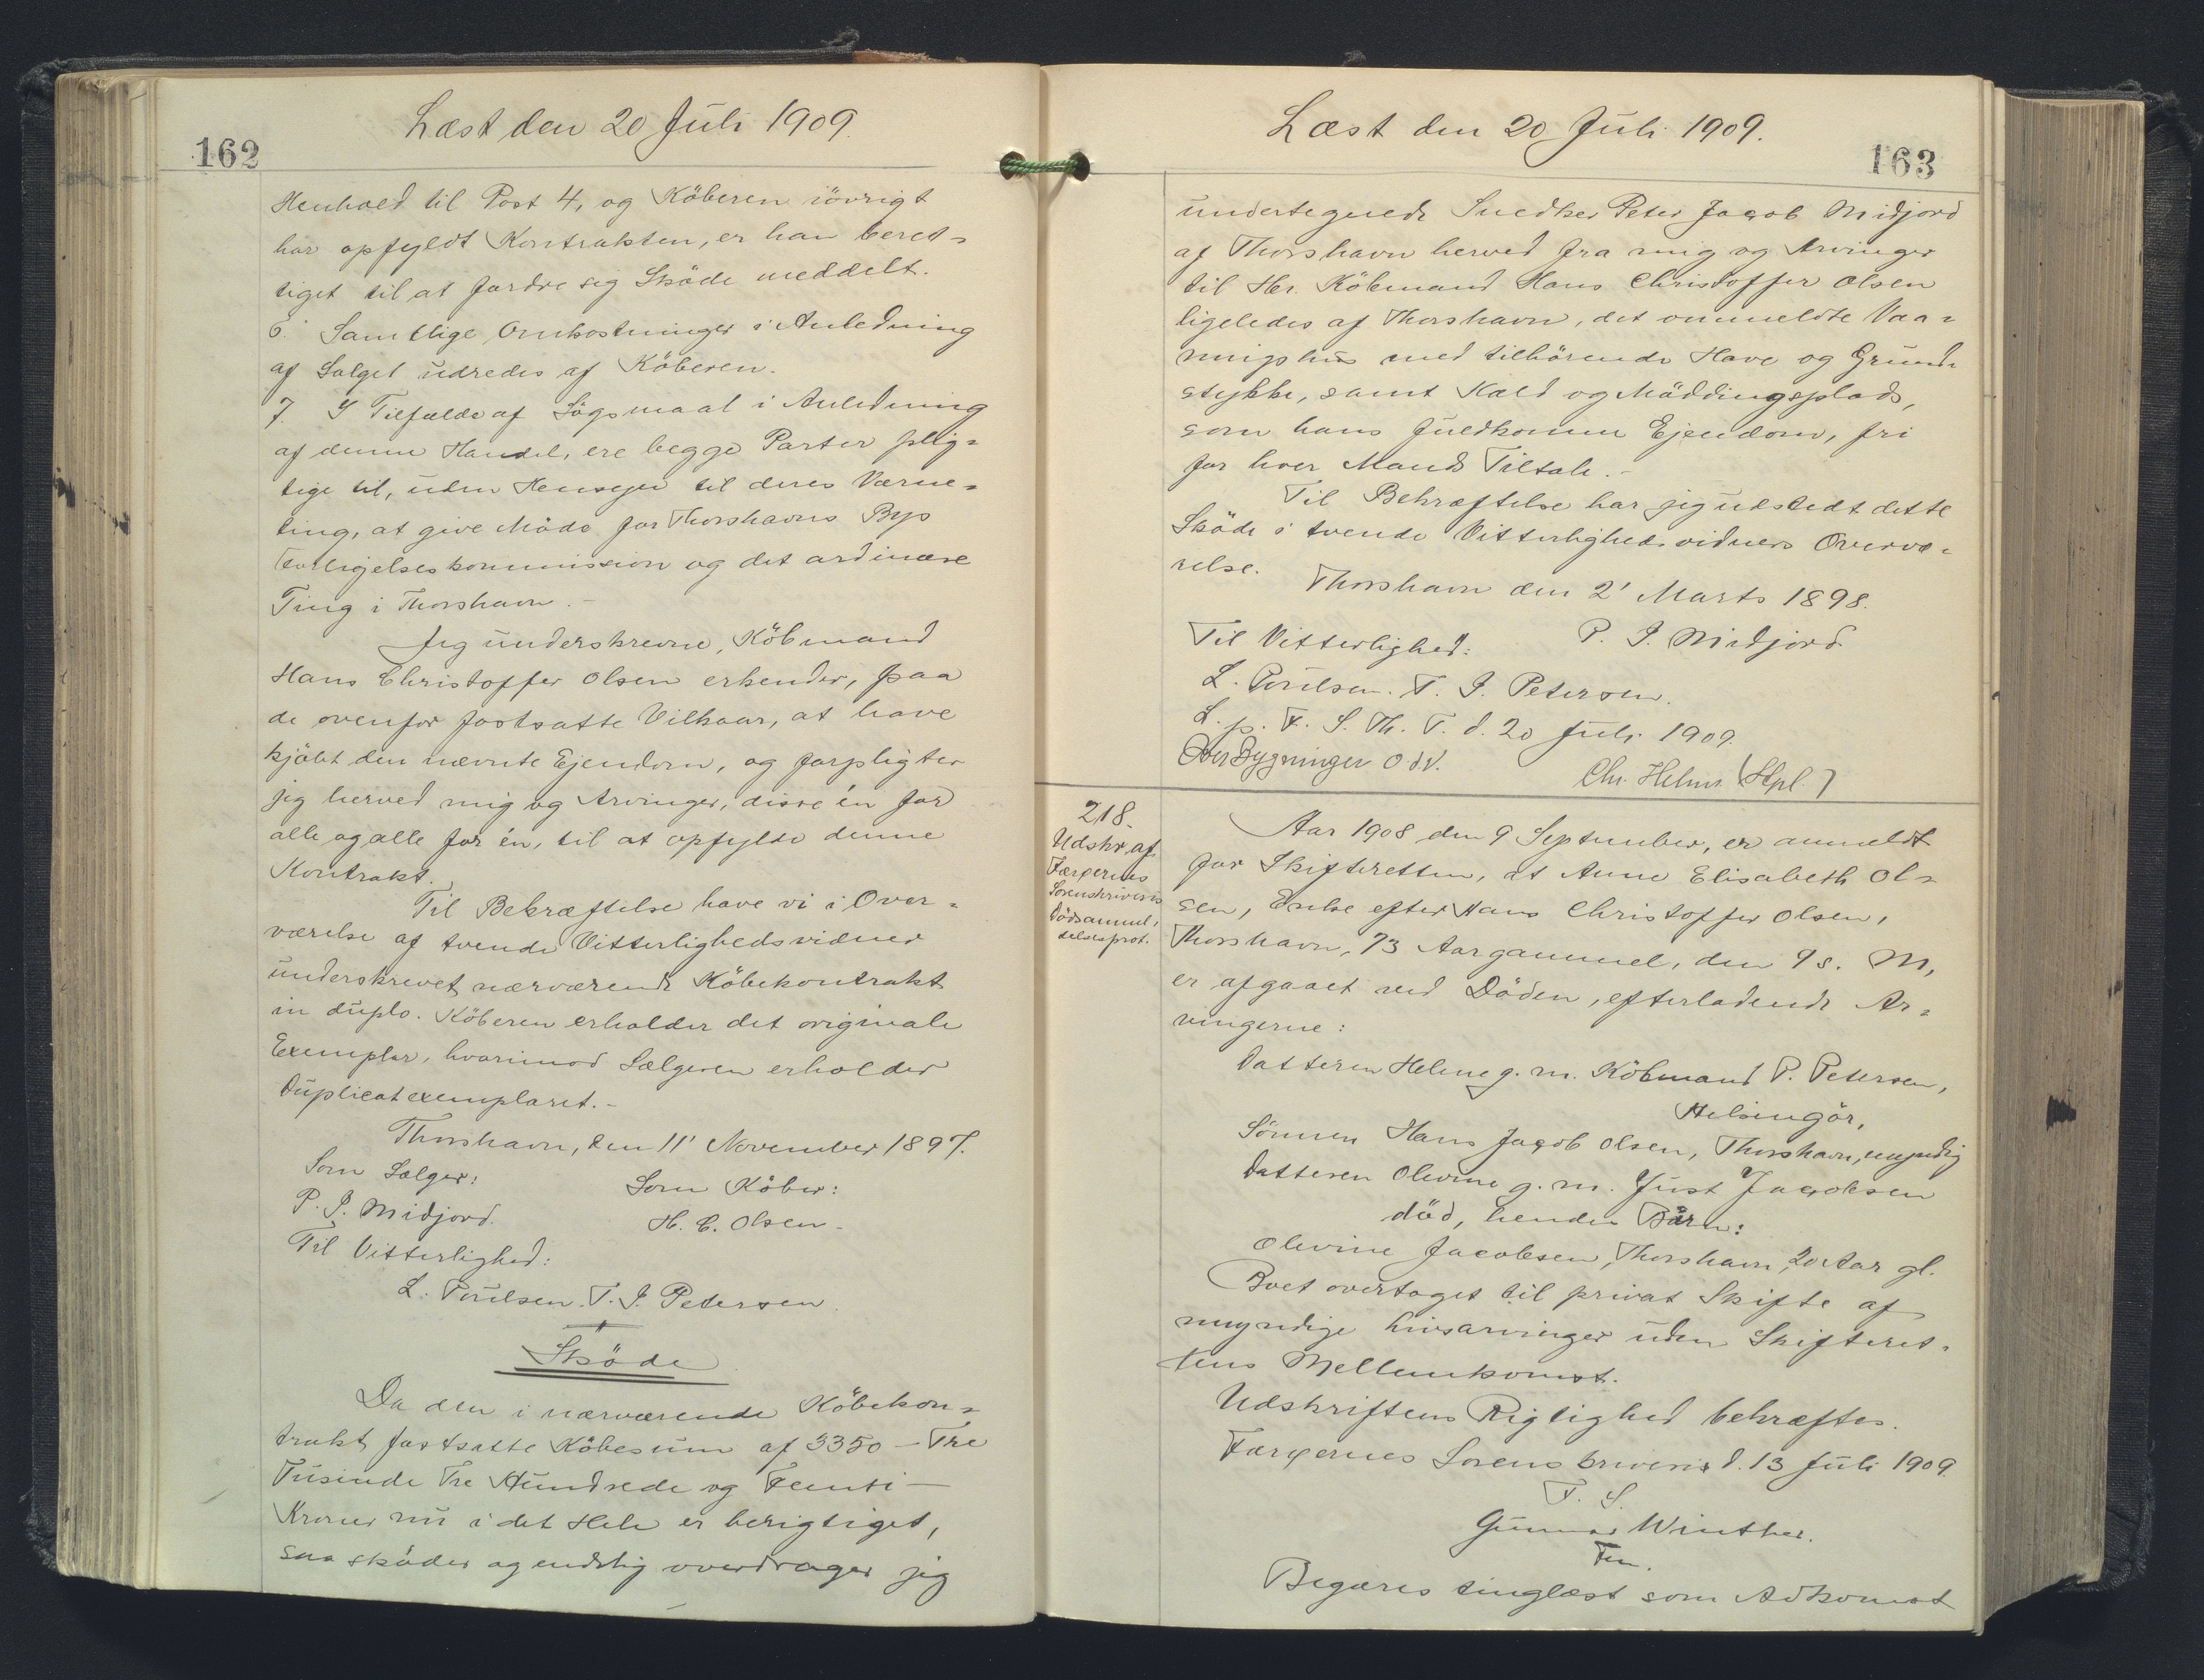 Læst den 20 Juli 1909.
162
Henhold til Post 4, og Köberen iövrigt
har opfyldt Kontrakten, er han beret=
tiget til at fordre sig Sköde meddelt.
6. Samtlige Omkostninger i Anledning
af Salget udredes af Köberen.
7. I Tilfælde af Sögsmaal i Anledning
af denne Handel, ere begge Parter plig=
tige til, uden Hensyn til deres Værne=
ting, at give Möde for Thorshavns Bys
Forligelseskommission og det ordinære
Ting i Thorshavn.-
Jeg underskrevne, Köbmand
Hans Christoffer Olsen erkender, paa
de ovenfor fastsatte Vilkaar, at have
kjöbt den nævnte Ejendom, og forpligter
jeg herved mig og Arvinger, disse én for
alle og alle for én, til at opfylde denne
Kontrakt.
Til Bekræftelse have vi i Over=
værelse af tvende Vitterlighedsvidner
underskrevet nærværende Köbekontrakt
in duplo. Köberen erholder det originale
Exemplar, hvorimod Sælgeren erholder
Duplicatexemplaret.-
Thorshavn, den 11' November 1897.
Som Sælger:
Som Köber:
P. J. Midjord.
H. C. Olsen.
Til Vitterlighed:
L. Poulsen. T. J. Petersen.
Sköde
Da den i nærværende Köbekon=
trakt fastsatte Köbesum af 3350 - Tre
Tusinde Tre Hundrede og Femti -
Kroner nu i det Hele er berigtiget,
saa sköder og endelig overdrager jeg
Læst den 20 Juli 1909.
163
undertegnede Snedker Peter Jacob Midjord
af Thorshavn herved fra mig og Arvinger
til Hr. Köbmand Hans Christoffer Olsen
ligeledes af Thorshavn, det ommeldte Vaa=
ningshus med tilhörende Have og Grund=
stykke, samt Kæld og Möddingsplads,
som hans fuldkomne Ejendom, fri
for hver Mands Tiltale.-
Til Bekræftelse har jeg udstedt dette
Sköde i tvende Vitterlighedsvidners Overvæ=
relse.
Thorshavn den 2' Marts 1898.
Til Vitterlighed:
P. J. Midjord
L. Poulsen. T. J. Petersen.
L. p. F. S. Th. T. d. 20 Juli 1909.
Bygninger
Chr. Helms (Stpl.)
218.
Udskr. af
Færøernes
Sorenskriveris
Dödsanmel=
delsesprot.
Aar 1908 den 9 September, er anmeldt
for Skifteretten, at Anne Elisabeth Ol=
sen, Enke efter Hans Christoffer Olsen,
Thorshavn, 73 Aar gammel, den 9 s. M,
er afgaaet ved Döden, efterladende Ar=
vingerne:
Datteren Helene g. m. Köbmand P. Petersen,
Helsingör,
Sönnen Hans Jacob Olsen, Thorshavn, myndig
Datteren Olevine g. m. Just Jacobsen
död, hendes Barn:
Olevine Jacobsen, Thorshavn, 20 Aar gl.
Boet overtaget til privat Skifte af
myndige Livsarvinger uden Skifteret=
tens Mellemkomst.
Udskriftens Rigtighed bekræftes.
Færøernes Sorenskriveri d. 13 Juli 1909.
T. S.
Gunnar Winther.
Fm.
Begæres tinglæst som Adkomst